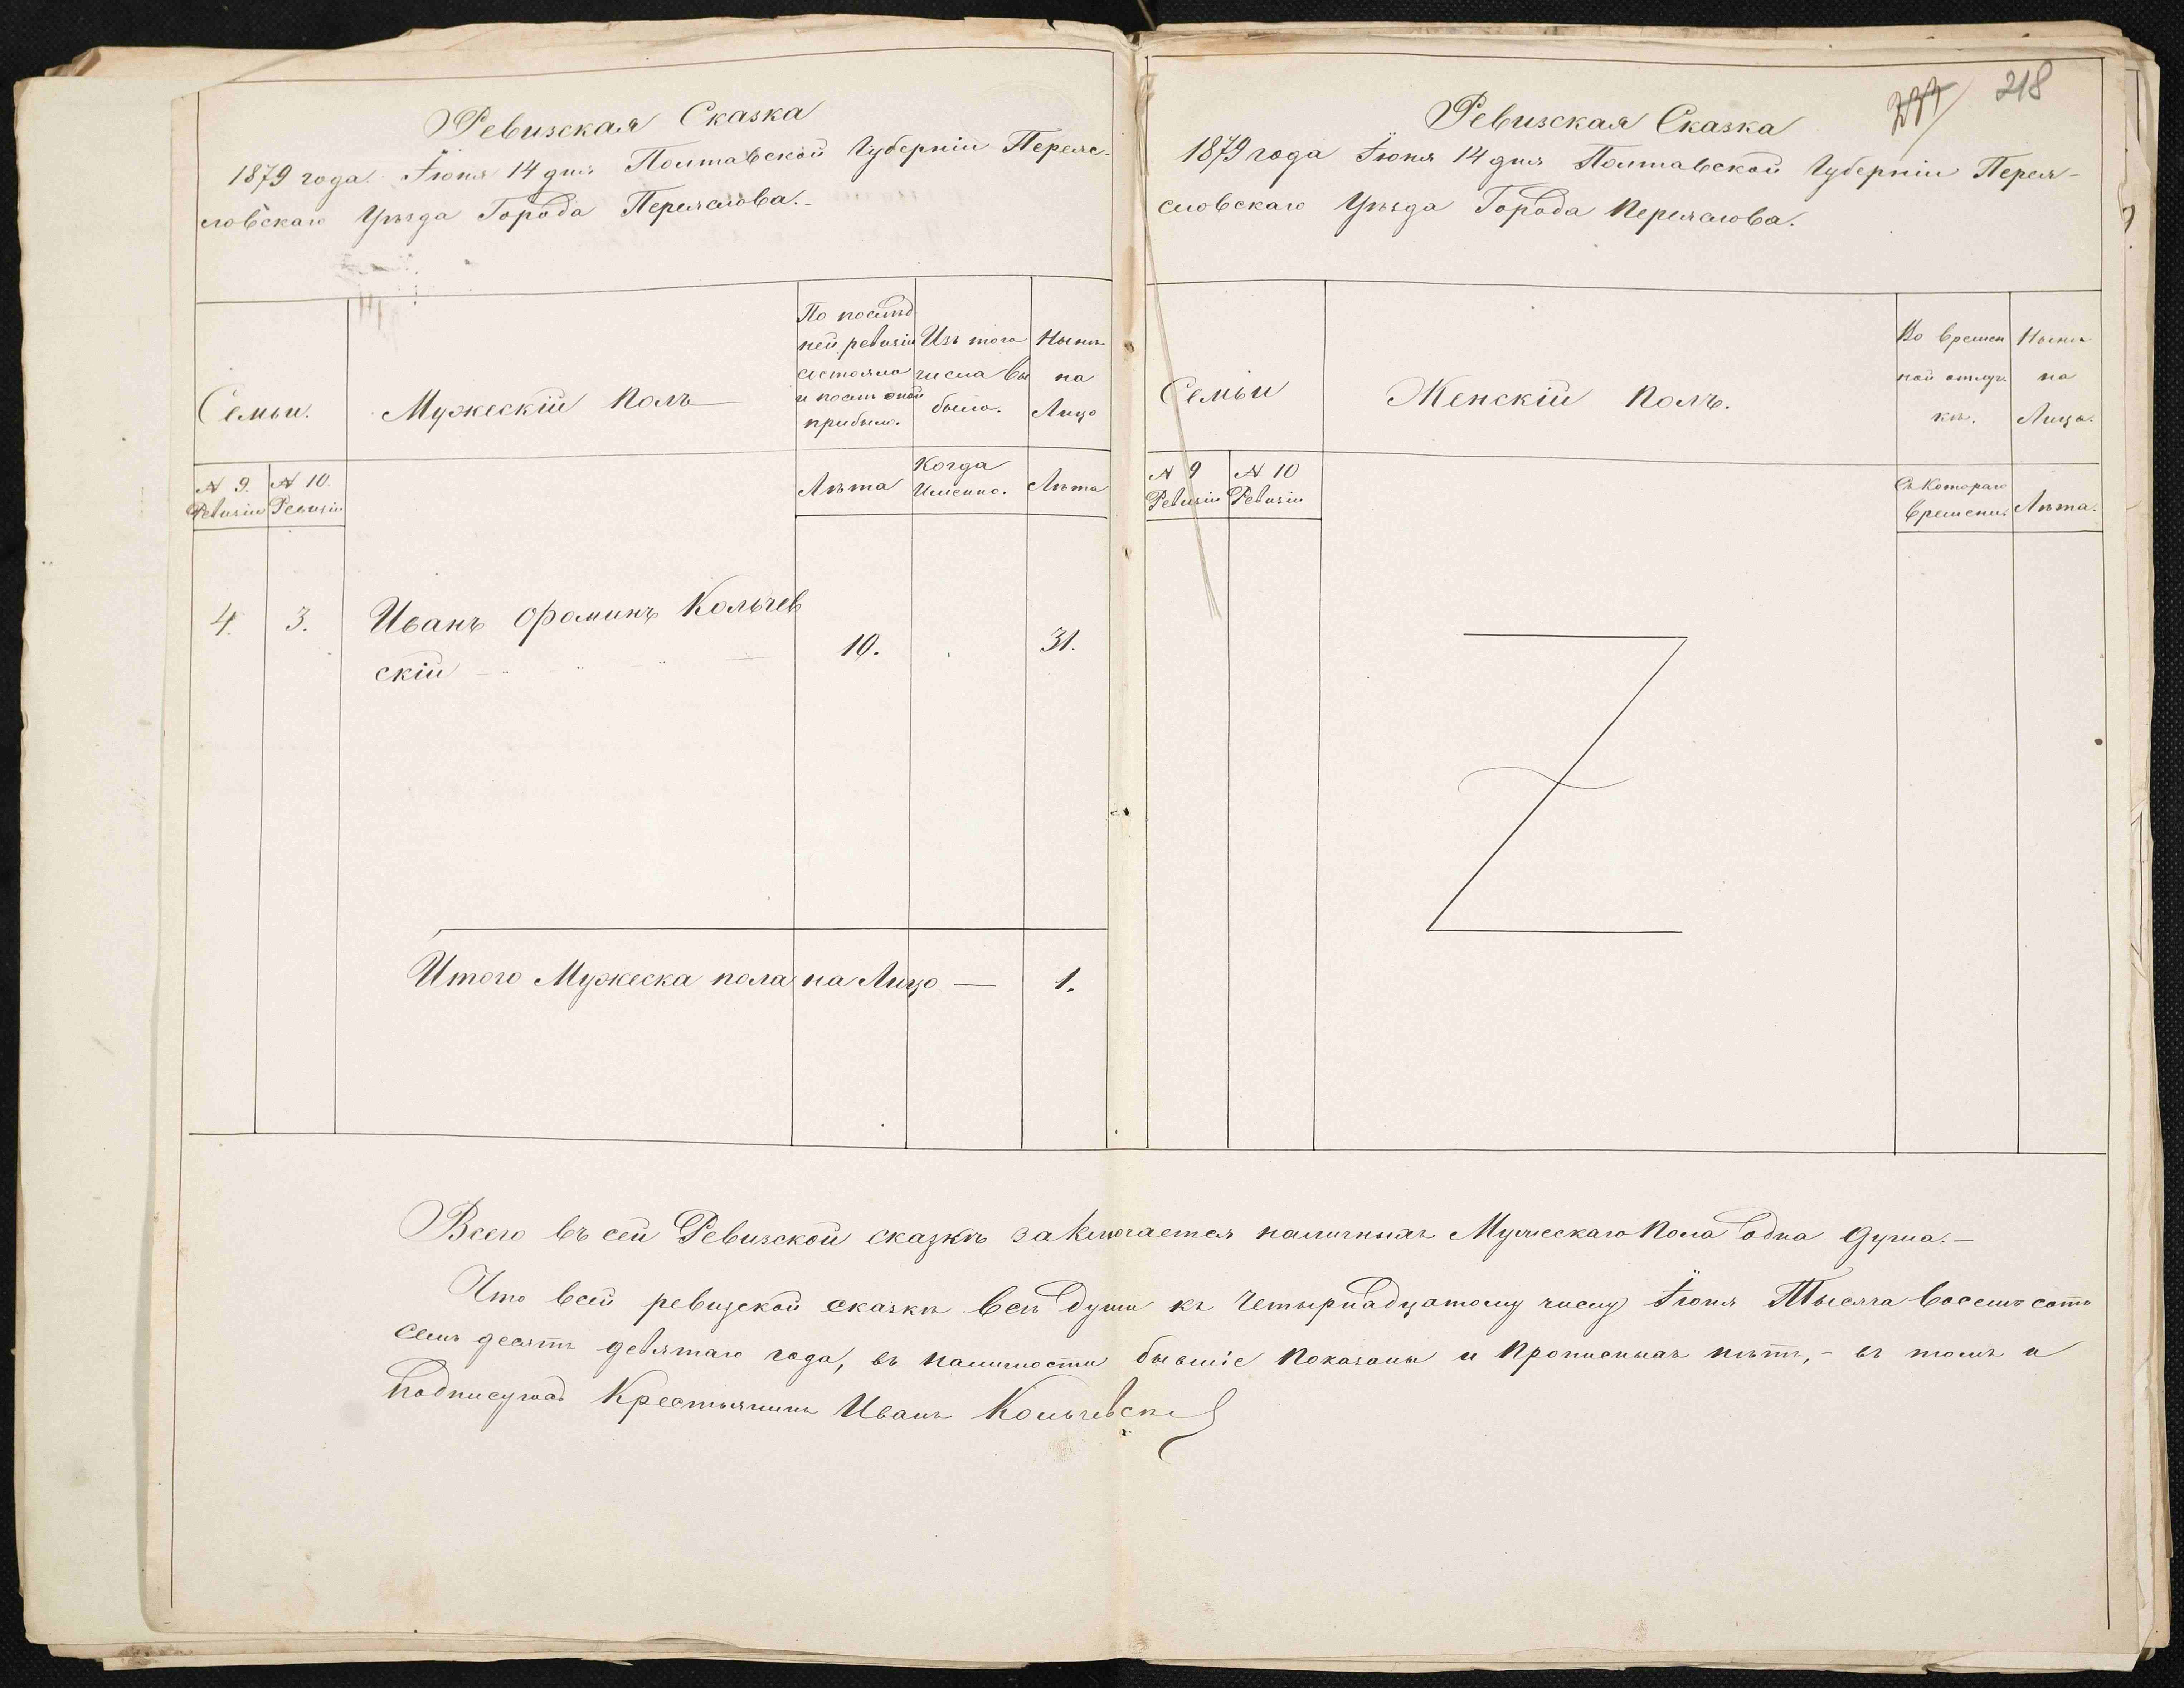 Ревизская Сказка
1879 года Іюня 14 дня Полтавской Губерніи Переяс-
ловскаго Уѣзда Города Переяслова.-
Семьи.
Мужескій Полъ
По послѣд
ней ревизіи
состояло
и послѣ оной
прибыло.
Изъ того
числа вы
было.
Нынѣ
на
Лицо
№ 9. Ревизіи
№ 10. Ревизіи
Лѣта
Когда Именно.
Лѣта
4. 3. Иванъ Ѳоминъ Кольчев
скій 10. 31.
Итого Мужеска пола на Лицо — 1.
218
Ревизская Сказка
1879 года Іюня 14 дня Полтавской Губерніи Перея-
словскаго Уѣзда Города Переяслова.
Семьи
Женскій Полъ.
Во времен
ной отлуч
кѣ.
Нынѣ
на
Лицо.
№ 9 Ревизіи
№ 10 Ревизіи
Съ Котораго
времени.
Лѣта.
Всего въ сей Ревизской сказкѣ заключается наличныхъ Мужескаго Пола одна душа.-
Что в сей ревизской сказкѣ всѣ души къ Четырнадцатому числу Іюня Тысяча восемъ сотъ
семь десятъ девятаго года, въ наличности бывшіе показаны и прописныхъ нѣтъ,- въ томъ и
подписуюсь Крестьянинъ Иванъ Кольчевскі